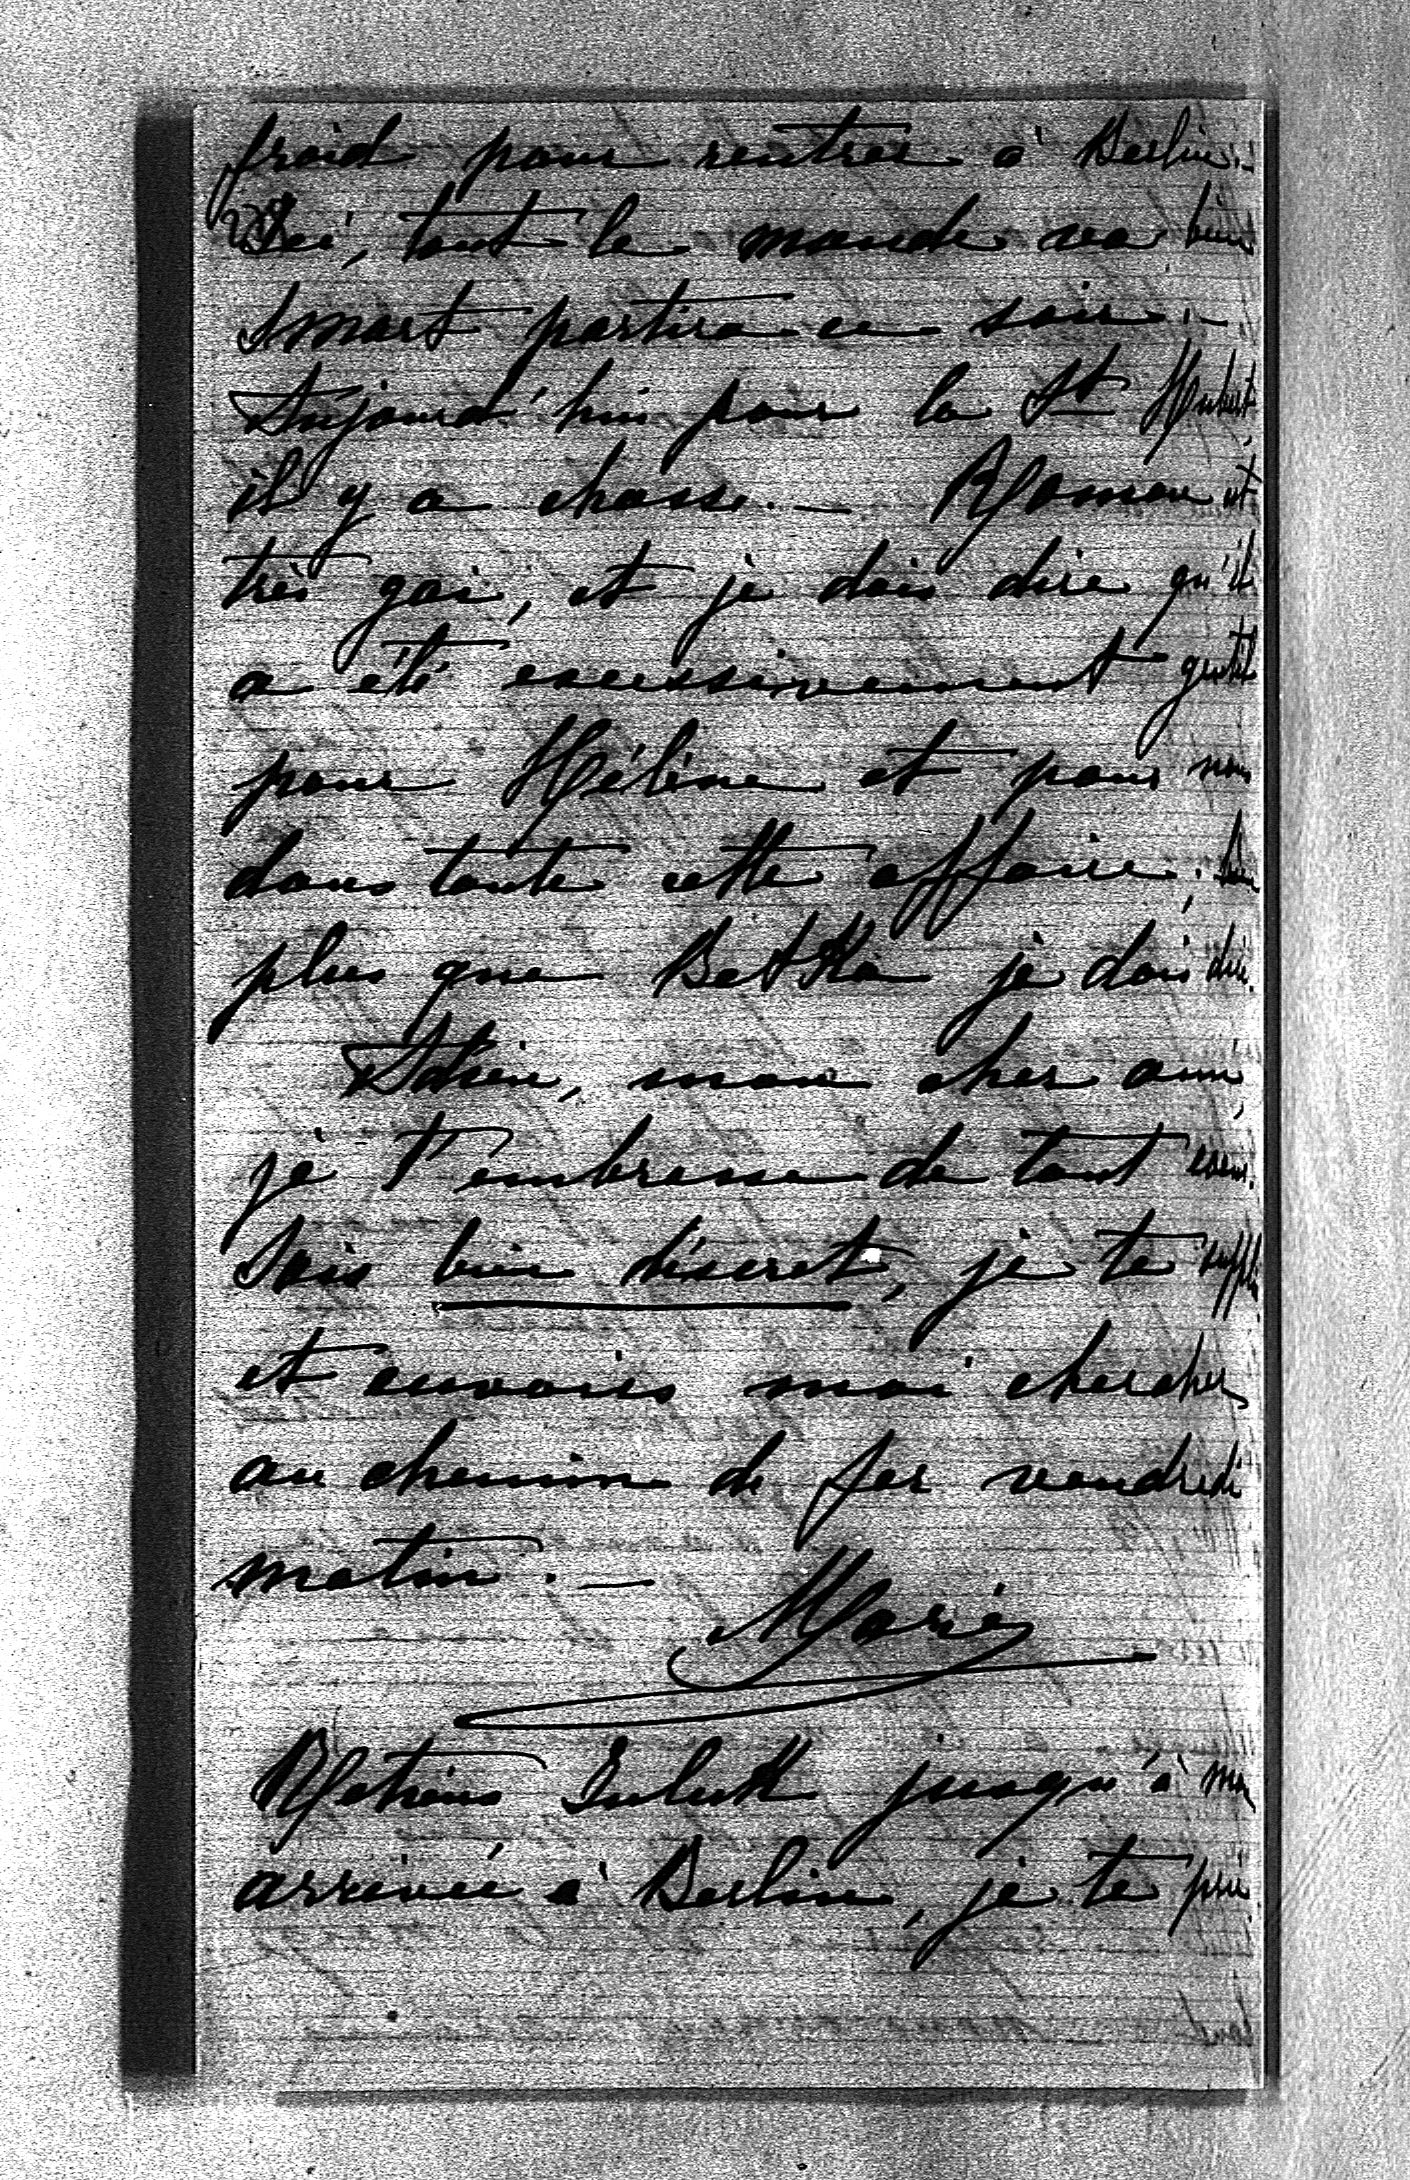 froid pour rentrer à Berlin. —
Ici, tout le monde va bien
Smart partira ce soir. —
Aujourd'hui pour la St Hubert
il y a chasse. — Roman est
très gai, et je dois dire qu'il
a été excessivement gentil
pour Hélène et pour nous
dans toute cette affaire. Bien
plus que Betka je dois dire.
Adieu, mon cher ami,
je t'embrasse de tout coeur.
Sois bien discret, je te supplie
et envoies moi chercher
au chemin de fer vendredi
matin. —
Marie
Retiens jusqu'à mon
arrivée à Berlin, je te prie